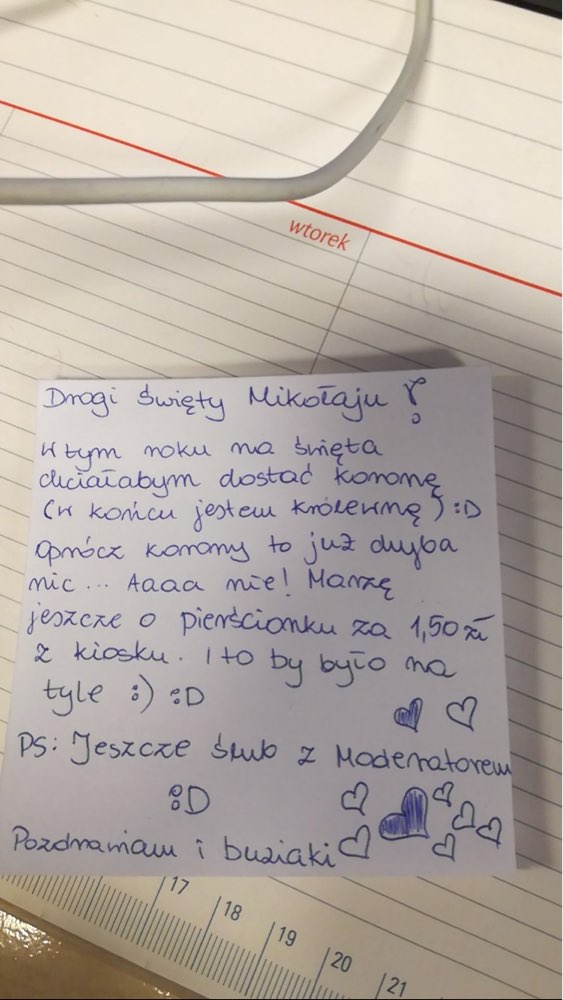 wtorek
Drogi Święty Mikołaju !
W tym roku na święta
chciałabym dostać koronę
(w końcu jestem królewną) :D
Oprócz korony to już chyba
nic... Aaaa nie! Marzę
jeszcze o pierścionku za 1,50 zł
z kiosku. I to by było na
tyle :) :D
PS: Jeszcze ślub z Moderatorem
:D
Pozdrawiam i buziaki
17 18 19 20 21